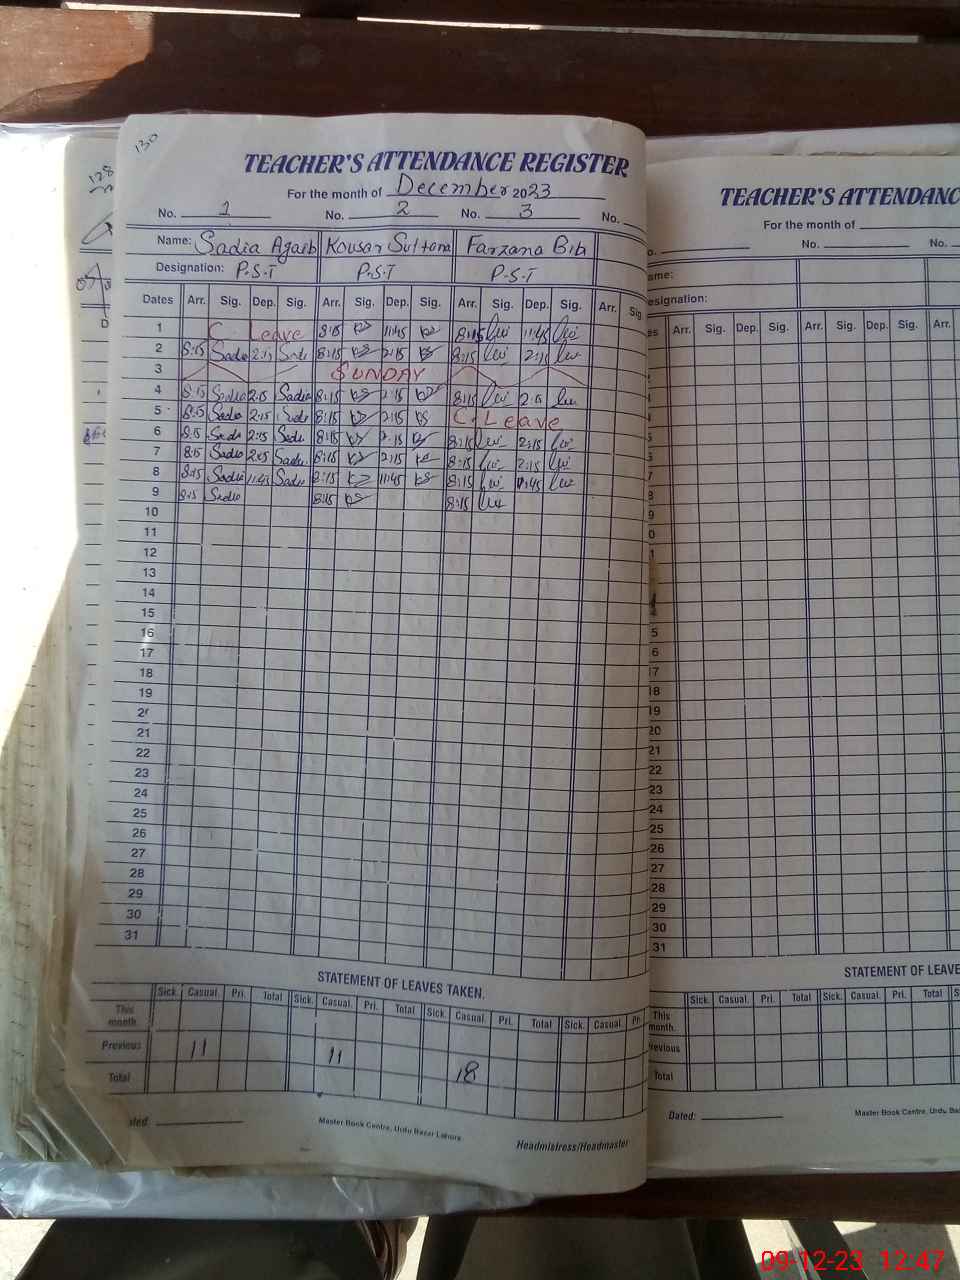 130
128
TEACHER'S ATTENDANCE REGISTER
For the month of December 2023
No. 1 No. 2 No. 3 No.
Name: Sadia Kousar Sultana Farzana Bibi
Designation: P.S.T P.S.T P.S.T
Dates Arr. Sig. Dep. Sig. Arr. Sig. Dep. Sig. Arr. Sig. Dep. Sig. Arr. Sig.
1 C. Leave 8:15 KS 11:45 KS 8:15 11:45
2 8:15 Sadia 2:15 Sadia 8:15 KS 2:15 KS 8:15 2:15
3 SUNDAY
4 8:15 Sadia 2:15 Sadia 8:15 KS 2:15 KS 8:15 2:15
5 8:15 Sadia 2:15 Sadia 8:15 KS 2:15 KS C. Leave
6 8:15 Sadia 2:15 Sadia 8:15 KS 2:15 KS 8:15 2:15
7 8:15 Sadia 2:15 Sadia 8:15 KS 2:15 KS 8:15 2:15
8 8:15 Sadia 11:45 Sadia 8:15 KS 11:45 KS 8:15 11:45
9 8:15 Sadia 8:15 KS 8:15
10
11
12
13
14
15
16
17
18
19
20
21
22
23
24
25
26
27
28
29
30
31
STATEMENT OF LEAVES TAKEN.
Sick. Casual. Pri. Total Sick. Casual. Pri. Total Sick. Casual. Pri. Total Sick. Casual. Pri
This month.
Previous 11 11 18
Total
Master Book Centre, Urdu Bazar Lahore
Headmistress/Headmaster
TEACHER'S ATTENDANC
For the month of
No. No.
ame:
esignation:
es Arr. Sig. Dep. Sig. Arr. Sig. Dep. Sig. Arr.
STATEMENT OF LEAVE
Sick. Casual. Pri. Total Sick. Casual. Pri. Total S
This month.
revious
Total
Dated:
Master Book Centre, Urdu Baz
09-12-23 12:47